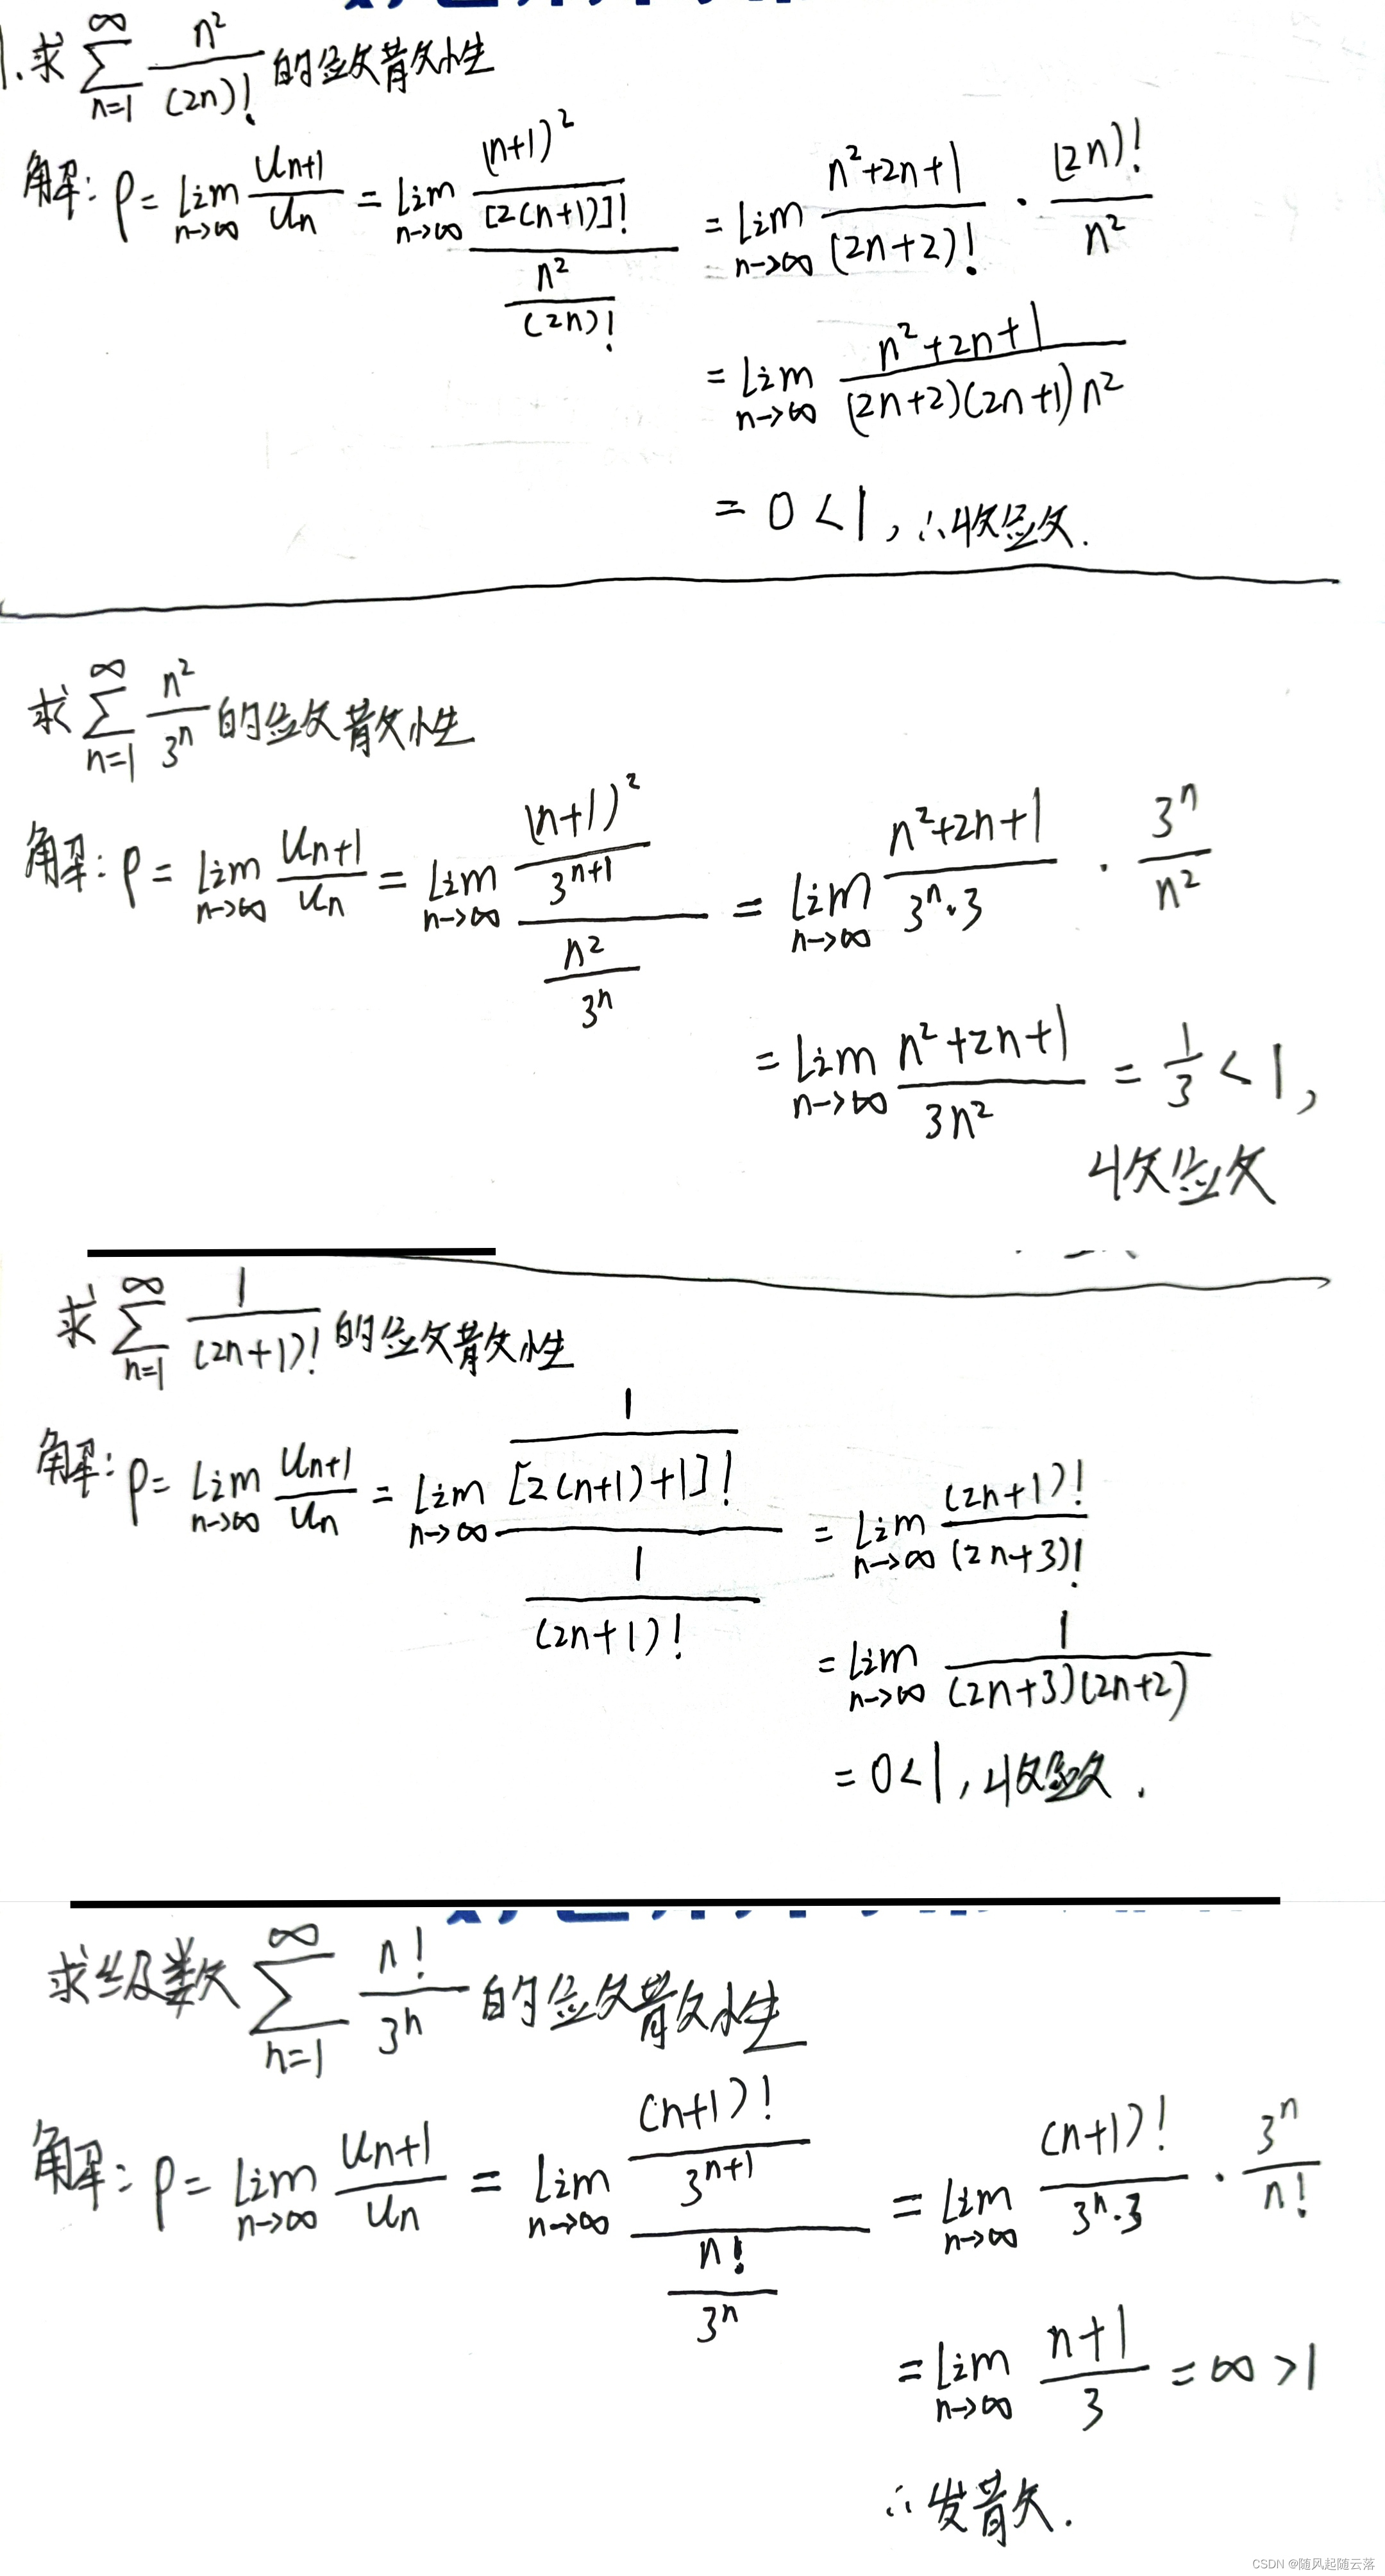 1.求 \sum_{n=1}^{\infty} \frac{n^2}{(2n)!} 的敛散性
解: ρ = \lim_{n→∞} \frac{u_{n+1}}{u_n} = \lim_{n→∞} \frac{\frac{(n+1)^2}{[2(n+1)]!}}{\frac{n^2}{(2n)!}} = \lim_{n→∞} \frac{n^2+2n+1}{(2n+2)!} · \frac{(2n)!}{n^2}
= \lim_{n→∞} \frac{n^2+2n+1}{(2n+2)(2n+1)n^2}
= 0 < 1, ∴收敛.
求 \sum_{n=1}^{\infty} \frac{n^2}{3^n} 的敛散性
解: ρ = \lim_{n→∞} \frac{u_{n+1}}{u_n} = \lim_{n→∞} \frac{\frac{(n+1)^2}{3^{n+1}}}{\frac{n^2}{3^n}} = \lim_{n→∞} \frac{n^2+2n+1}{3^n·3} · \frac{3^n}{n^2}
= \lim_{n→∞} \frac{n^2+2n+1}{3n^2} = \frac{1}{3} < 1,
收敛
求 \sum_{n=1}^{\infty} \frac{1}{(2n+1)!} 的敛散性
解: ρ = \lim_{n→∞} \frac{u_{n+1}}{u_n} = \lim_{n→∞} \frac{\frac{1}{[2(n+1)+1]!}}{\frac{1}{(2n+1)!}} = \lim_{n→∞} \frac{(2n+1)!}{(2n+3)!}
= \lim_{n→∞} \frac{1}{(2n+3)(2n+2)}
= 0 < 1, 收敛.
求级数 \sum_{n=1}^{\infty} \frac{n!}{3^n} 的敛散性
解: ρ = \lim_{n→∞} \frac{u_{n+1}}{u_n} = \lim_{n→∞} \frac{\frac{(n+1)!}{3^{n+1}}}{\frac{n!}{3^n}} = \lim_{n→∞} \frac{(n+1)!}{3^n·3} · \frac{3^n}{n!}
= \lim_{n→∞} \frac{n+1}{3} = ∞ > 1
∴发散.
CSDN @随风起随云落